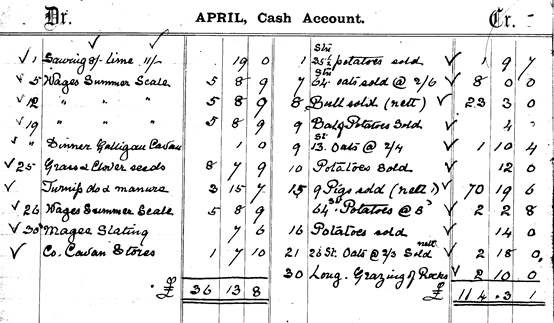 Dr. APRIL, Cash Account. Cr.
√ 1 Sawing 8/- lime 11/- 19 0
√ 5 Wages Summer Scale 5 8 9
√ 12 " " " 5 8 9
√ 19 " " " 5 8 9
√ " Dinner Galligan Cavan 1 0
√ 25 Grass & Clover seeds 8 7 9
√ Turnip do & manure 3 15 7
√ 26 Wages Summer Scale 5 8 9
√ 30 Magee Slating 7 6
√ Co. Cavan Stores 1 7 10
£ 36 13 8
1 35½ Stn potatoes sold √ 1 9 7
7 64 Stn oats sold @ 2/6 √ 8 0 0
8 Bull sold (nett) √ 23 3 0
9 Bag Potatoes Sold √ 4
9 13 St Oats @ 2/4 √ 1 10 4
10 Potatoes Sold √ 12 0
15 9 Pigs sold (nett) √ 70 19 6
64 St Potatoes @ 8 √ 2 2 8
16 Potatoes sold √ 14 0
21 26 St. Oats @ 2/3 Sold nett √ 2 18 0
30 Long. Grazing of Rocks √ 2 10 0
£ 114 3 1